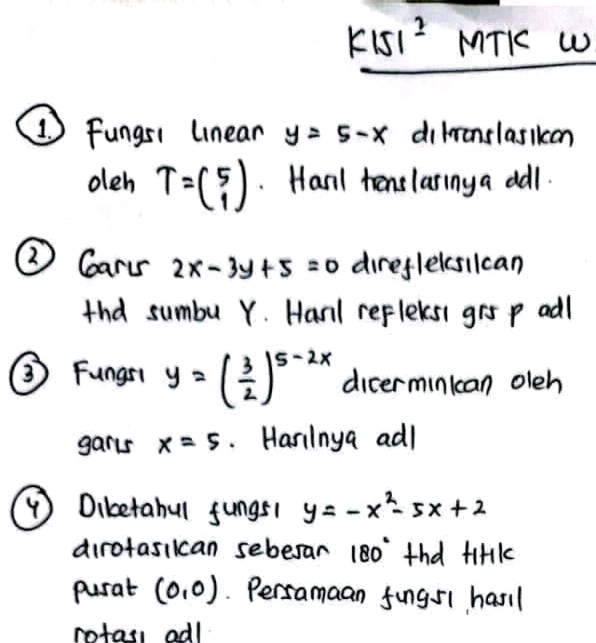 KISI² MTK W
1. Fungsi linear y = 5-x ditranslasikan
oleh T=(5 1). Hasil translasinya adl.
2 Garis 2x-3y+5=0 direfleksikan
thd sumbu Y. Hasil refleksi grs p adl
3 Fungsi y = (3/2)^5-2x dicerminkan oleh
garis x = 5. Hasilnya adl
4 Diketahui fungsi y = -x²-5x+2
dirotasikan sebesar 180° thd titik
pusat (0,0). Persamaan fungsi hasil
rotasi adl